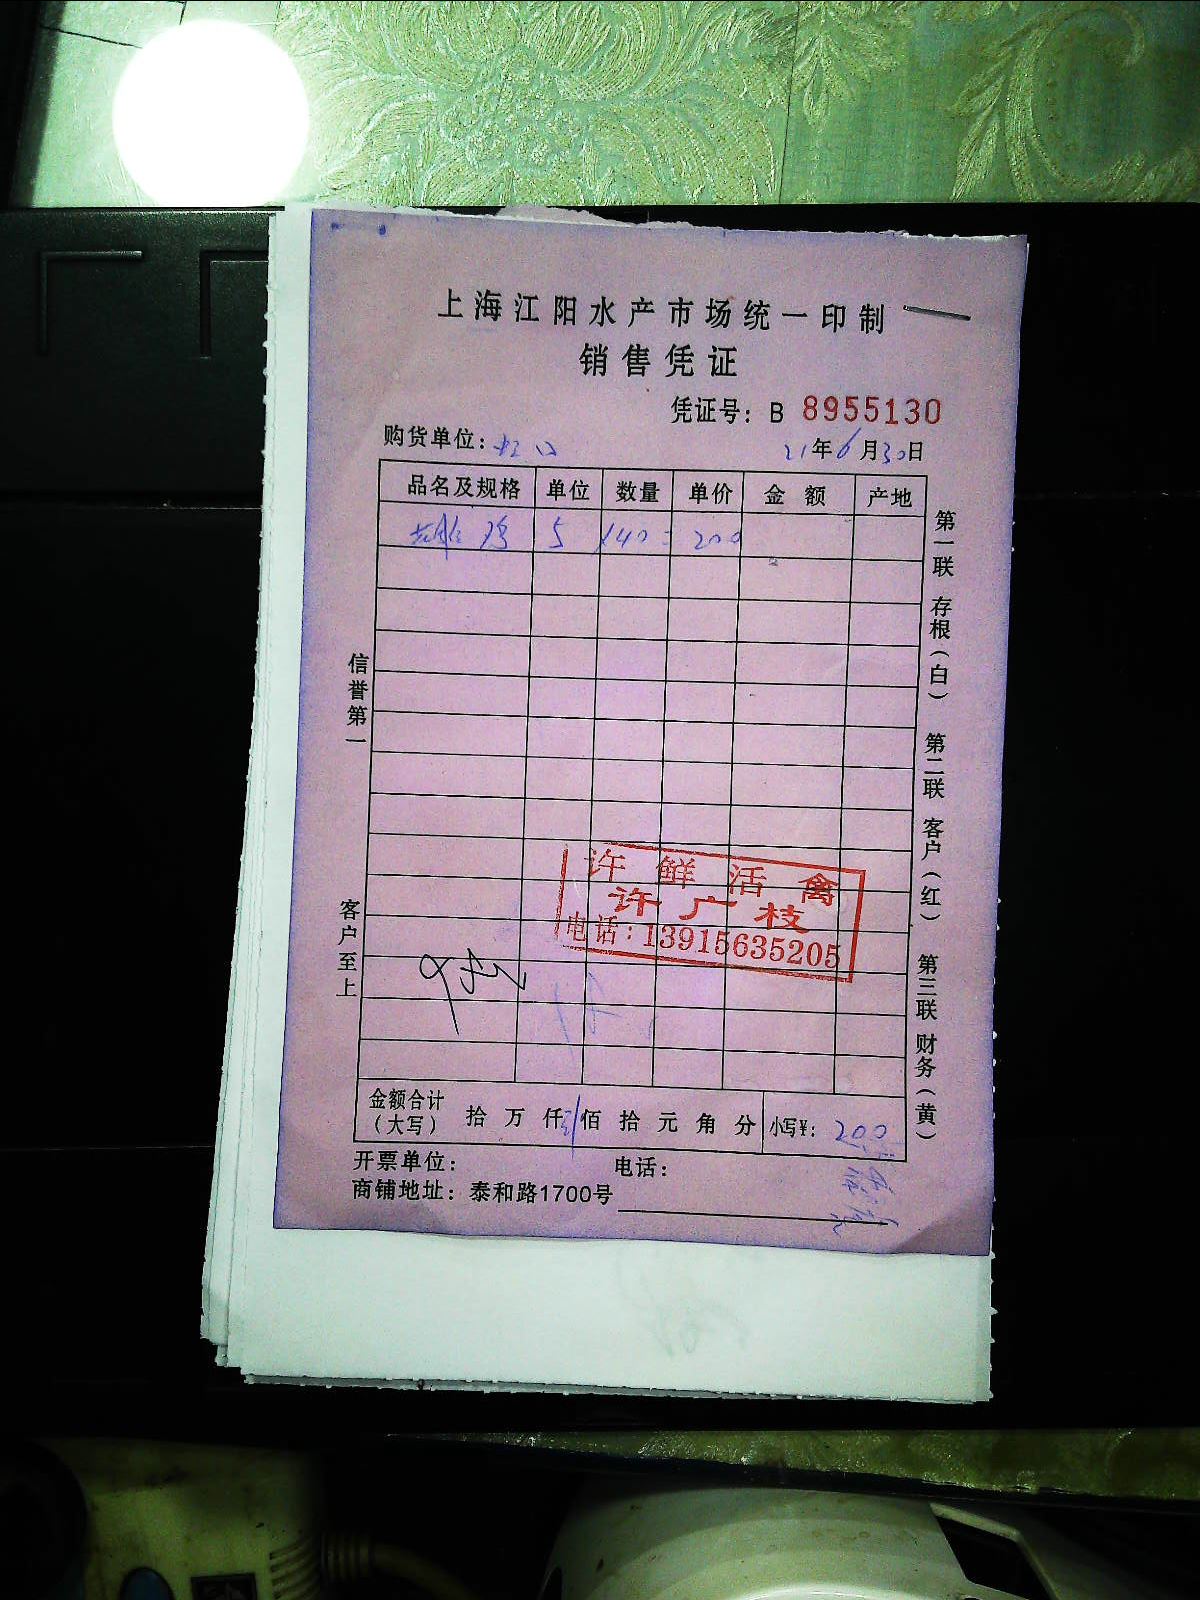 上海江阳水产市场统一印制
销售凭证
凭证号：B 8955130
购货单位：虹口 21年6月30日
品名及规格 单位 数量 单价 金额 产地
鸡 5 ×40= 200
信誉第一
客户至上
第一联 存根（白） 第二联 客户（红） 第三联 财务（黄）
许 鲜 活 禽
许广枝
电话：13915635205
金额合计（大写） 拾 万 仟 佰 拾 元 角 分 小写¥：200
开票单位： 电话：
商铺地址：泰和路1700号